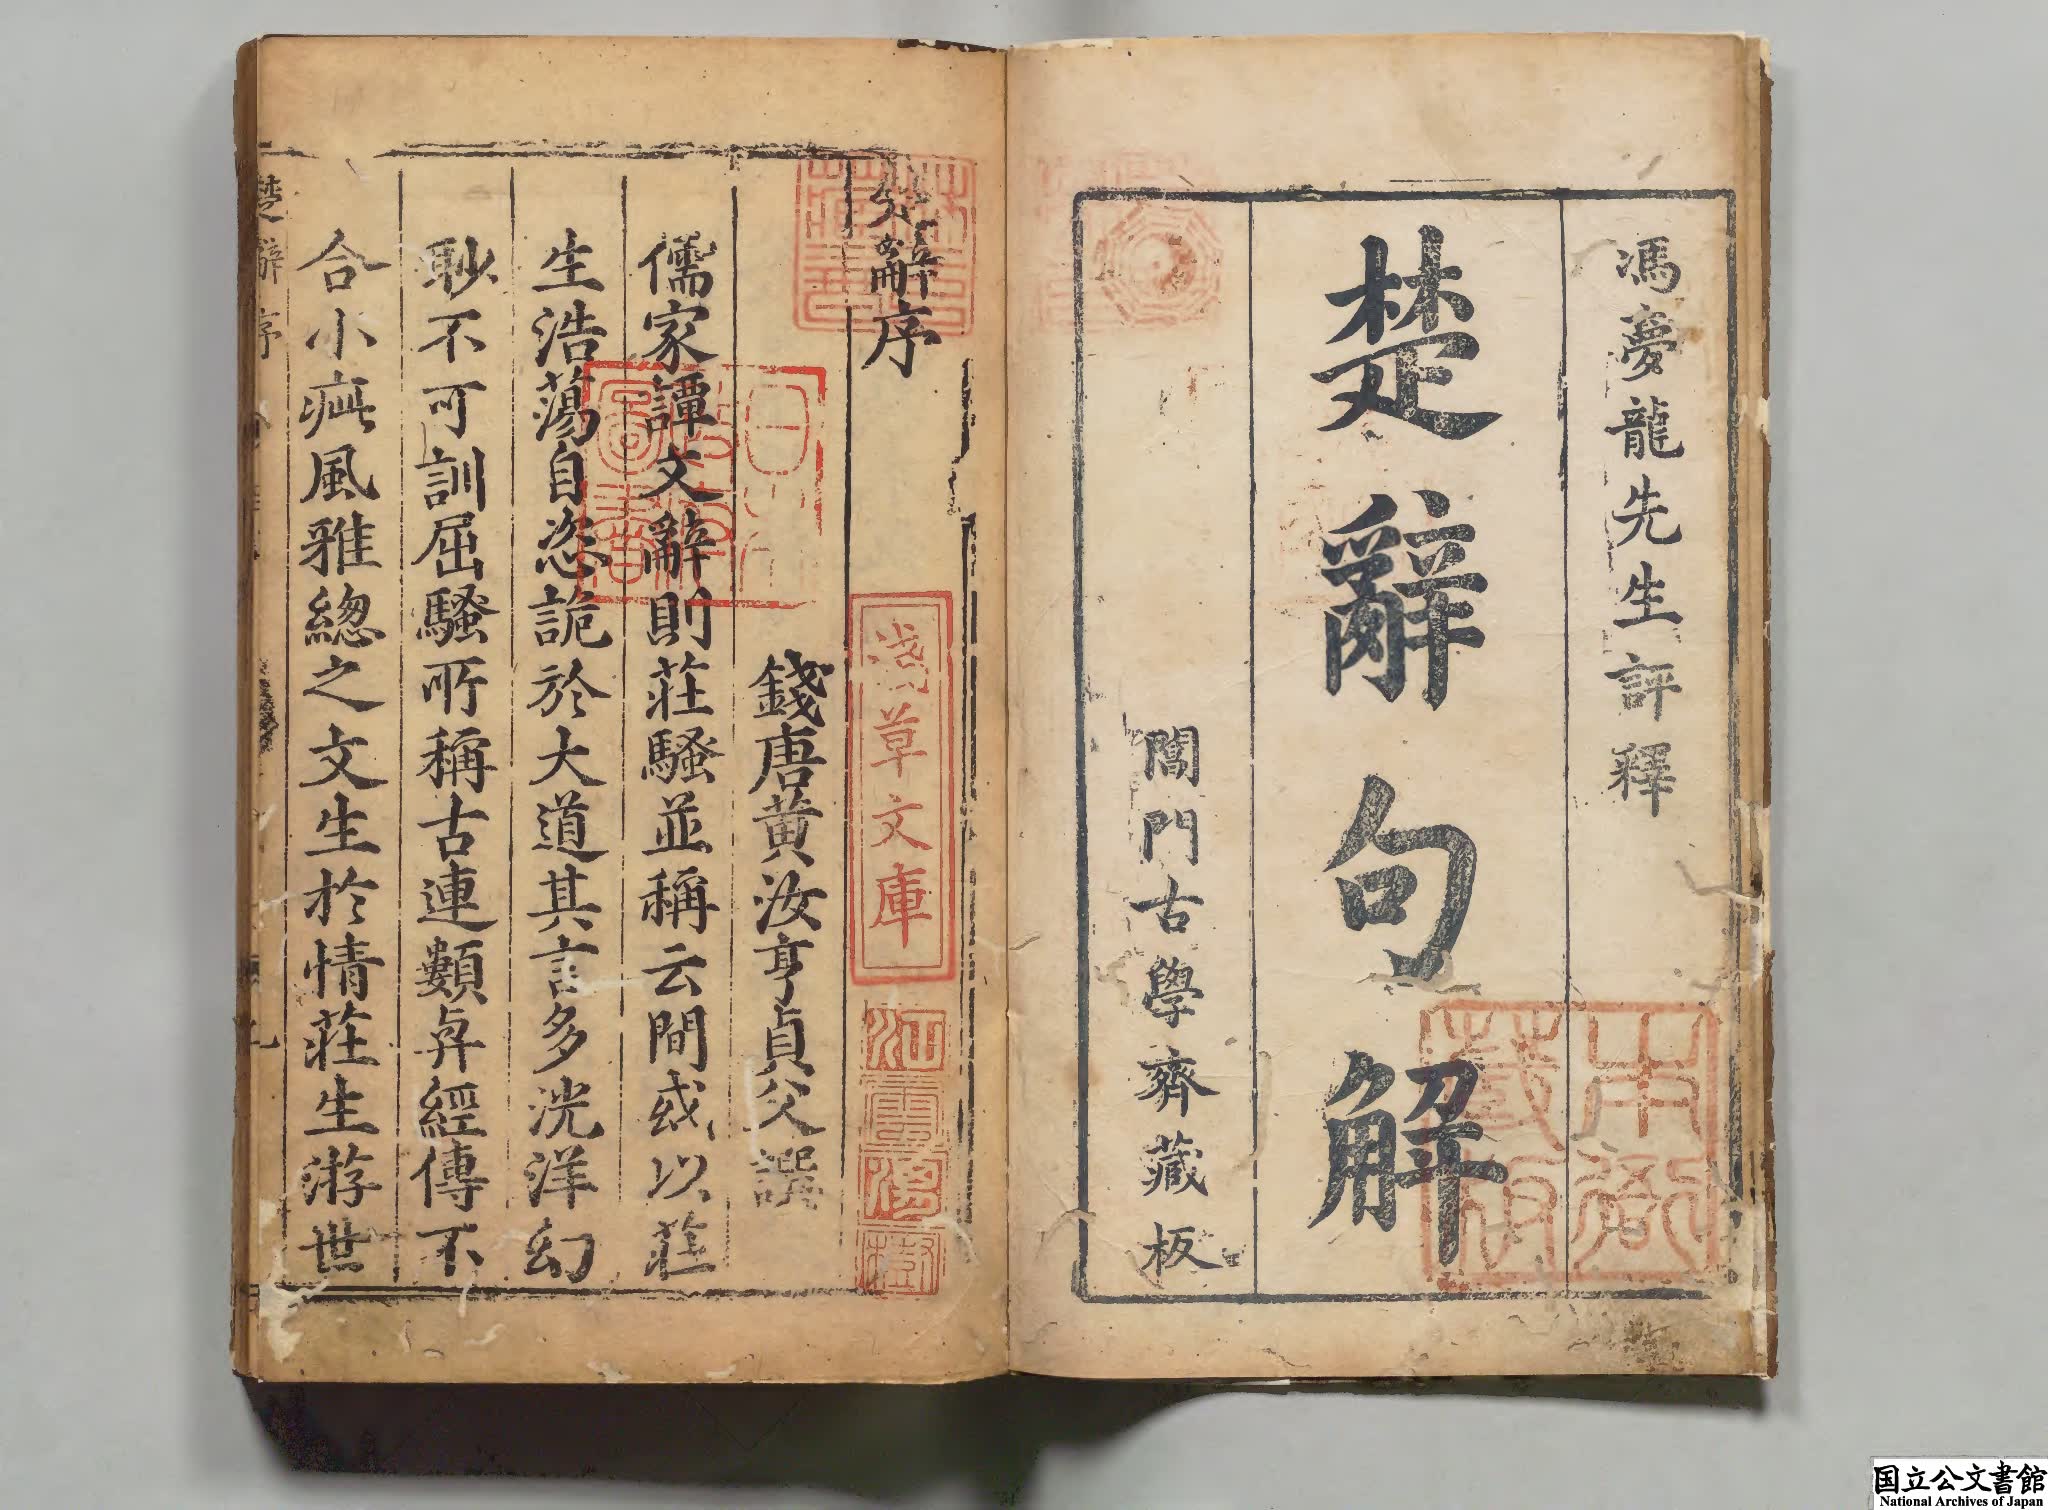 馮夢龍先生評釋
楚辭句解
閶門古學齊藏板
本衙藏板
楚辭序
錢唐黃汝亨貞父譔
儒家譚文辭則莊騷並稱云間或以莊
生浩蕩自恣詭於大道其言多洸洋幻
眇不可訓屈騷所稱古連類弁經傳不
合小疵風雅總之文生於情莊生游世
淺草文庫
江雲渭樹
日本政府圖書
林氏藏書
楚辭序
国立公文書館
National Archives of Japan